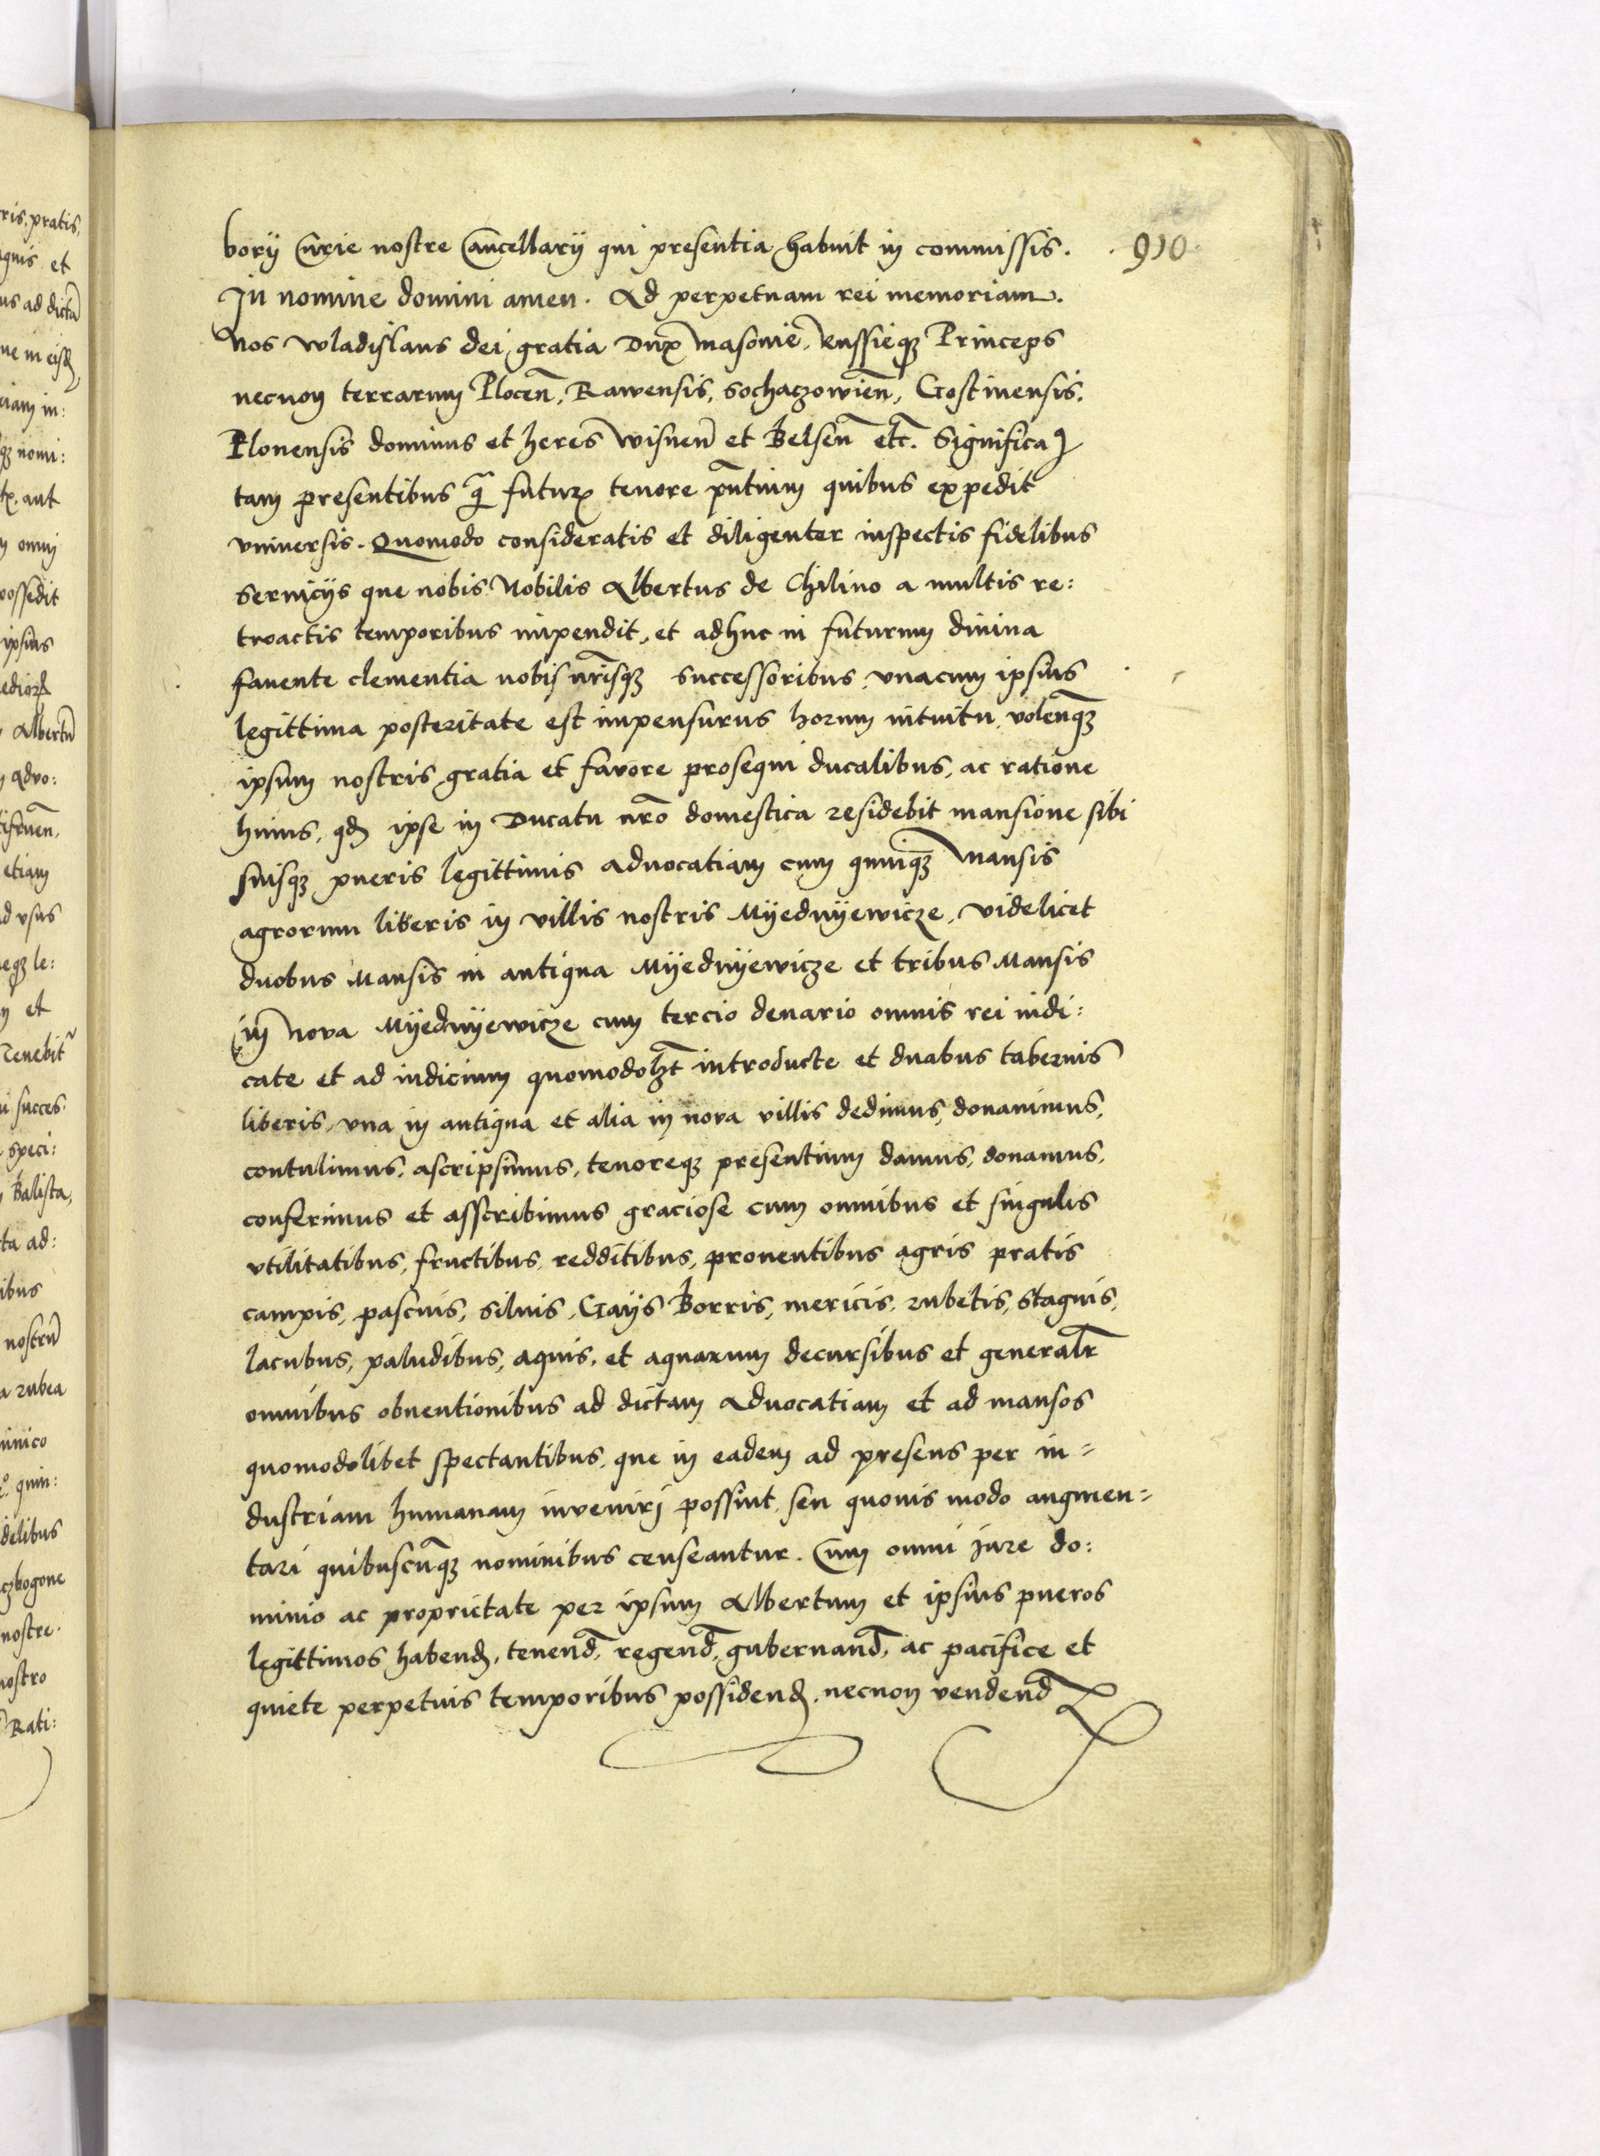 bory Curie nostre Cancellarij qui presentia habuit in commissis. · 910 ·
In nomine domini amen. Ad perpetuam rei memoriam.
Nos Wladislaus dei gratia Dux Masovie, Russieq3 Princeps
necnon terrarum Plocen̄, Rawensis, Sochaczowien̄, Gostinensis,
Plonensis dominus et heres Wisnen̄ et Belsen̄ etc̄. Significa
tam presentibus q̄ futur̄ tenore pn̄tium quibus expedit
vniuersis. Quomodo consideratis et diligenter inspectis fidelibus
seruicijs que nobis Nobilis Albertus de Chilino a multis re:
troactis temporibus impendit, et adhuc in futurum diuina
fauente clementia nobis nr̄isq3 successoribus, vnacum ipsius
legittima posteritate est impensurus horum intuitu, volen̄q3
ipsum nostris gratia et favore prosequi ducalibus, ac ratione
huius, qd̄ ipse in Ducatu nr̄o domestica residebit mansione sibi
suisq3 pueris legittimis aduocatiam cum quinq3 Mansis
agrorum liberis in villis nostris Myednyewicze, videlicet
duobus Mansis in antiqua Myednyewicze et tribus Mansis
in nova Myednyewicze cum tercio denario omnis rei iudi:
cate et ad iudicium quomodolz̄t introducte et duabus tabernis
liberis, vna in antiqua et alia in nova villis dedimus, donauimus,
contulimus, ascripsimus, tenoreq3 presentium damus, donamus,
conferimus et asscribimus graciose cum omnibus et singulis
vtilitatibus, fructibus, redditibus, prouentibus agris pratis
campis, pascuis, siluis, Gays Borris, mericis, rubetis, stagnis,
lacubus, paludibus, aquis, et aquarum decursibus et generalr̄
omnibus obuentionibus ad dictam Aduocatiam et ad mansos
quomodolibet spectantibus, que in eadem ad presens per in=
dustriam humanam inveniri possint, seu quouis modo augmen=
tari quibuscūq3 nominibus censeantur. Cum omni jure do:
minio ac proprietate per ipsum Albertum et ipsius pueros
legittimos habend̄, tenend̄, regend̄, gubernand̄, ac pacifice et
quiete perpetuis temporibus possidend̄, necnon vendend̄